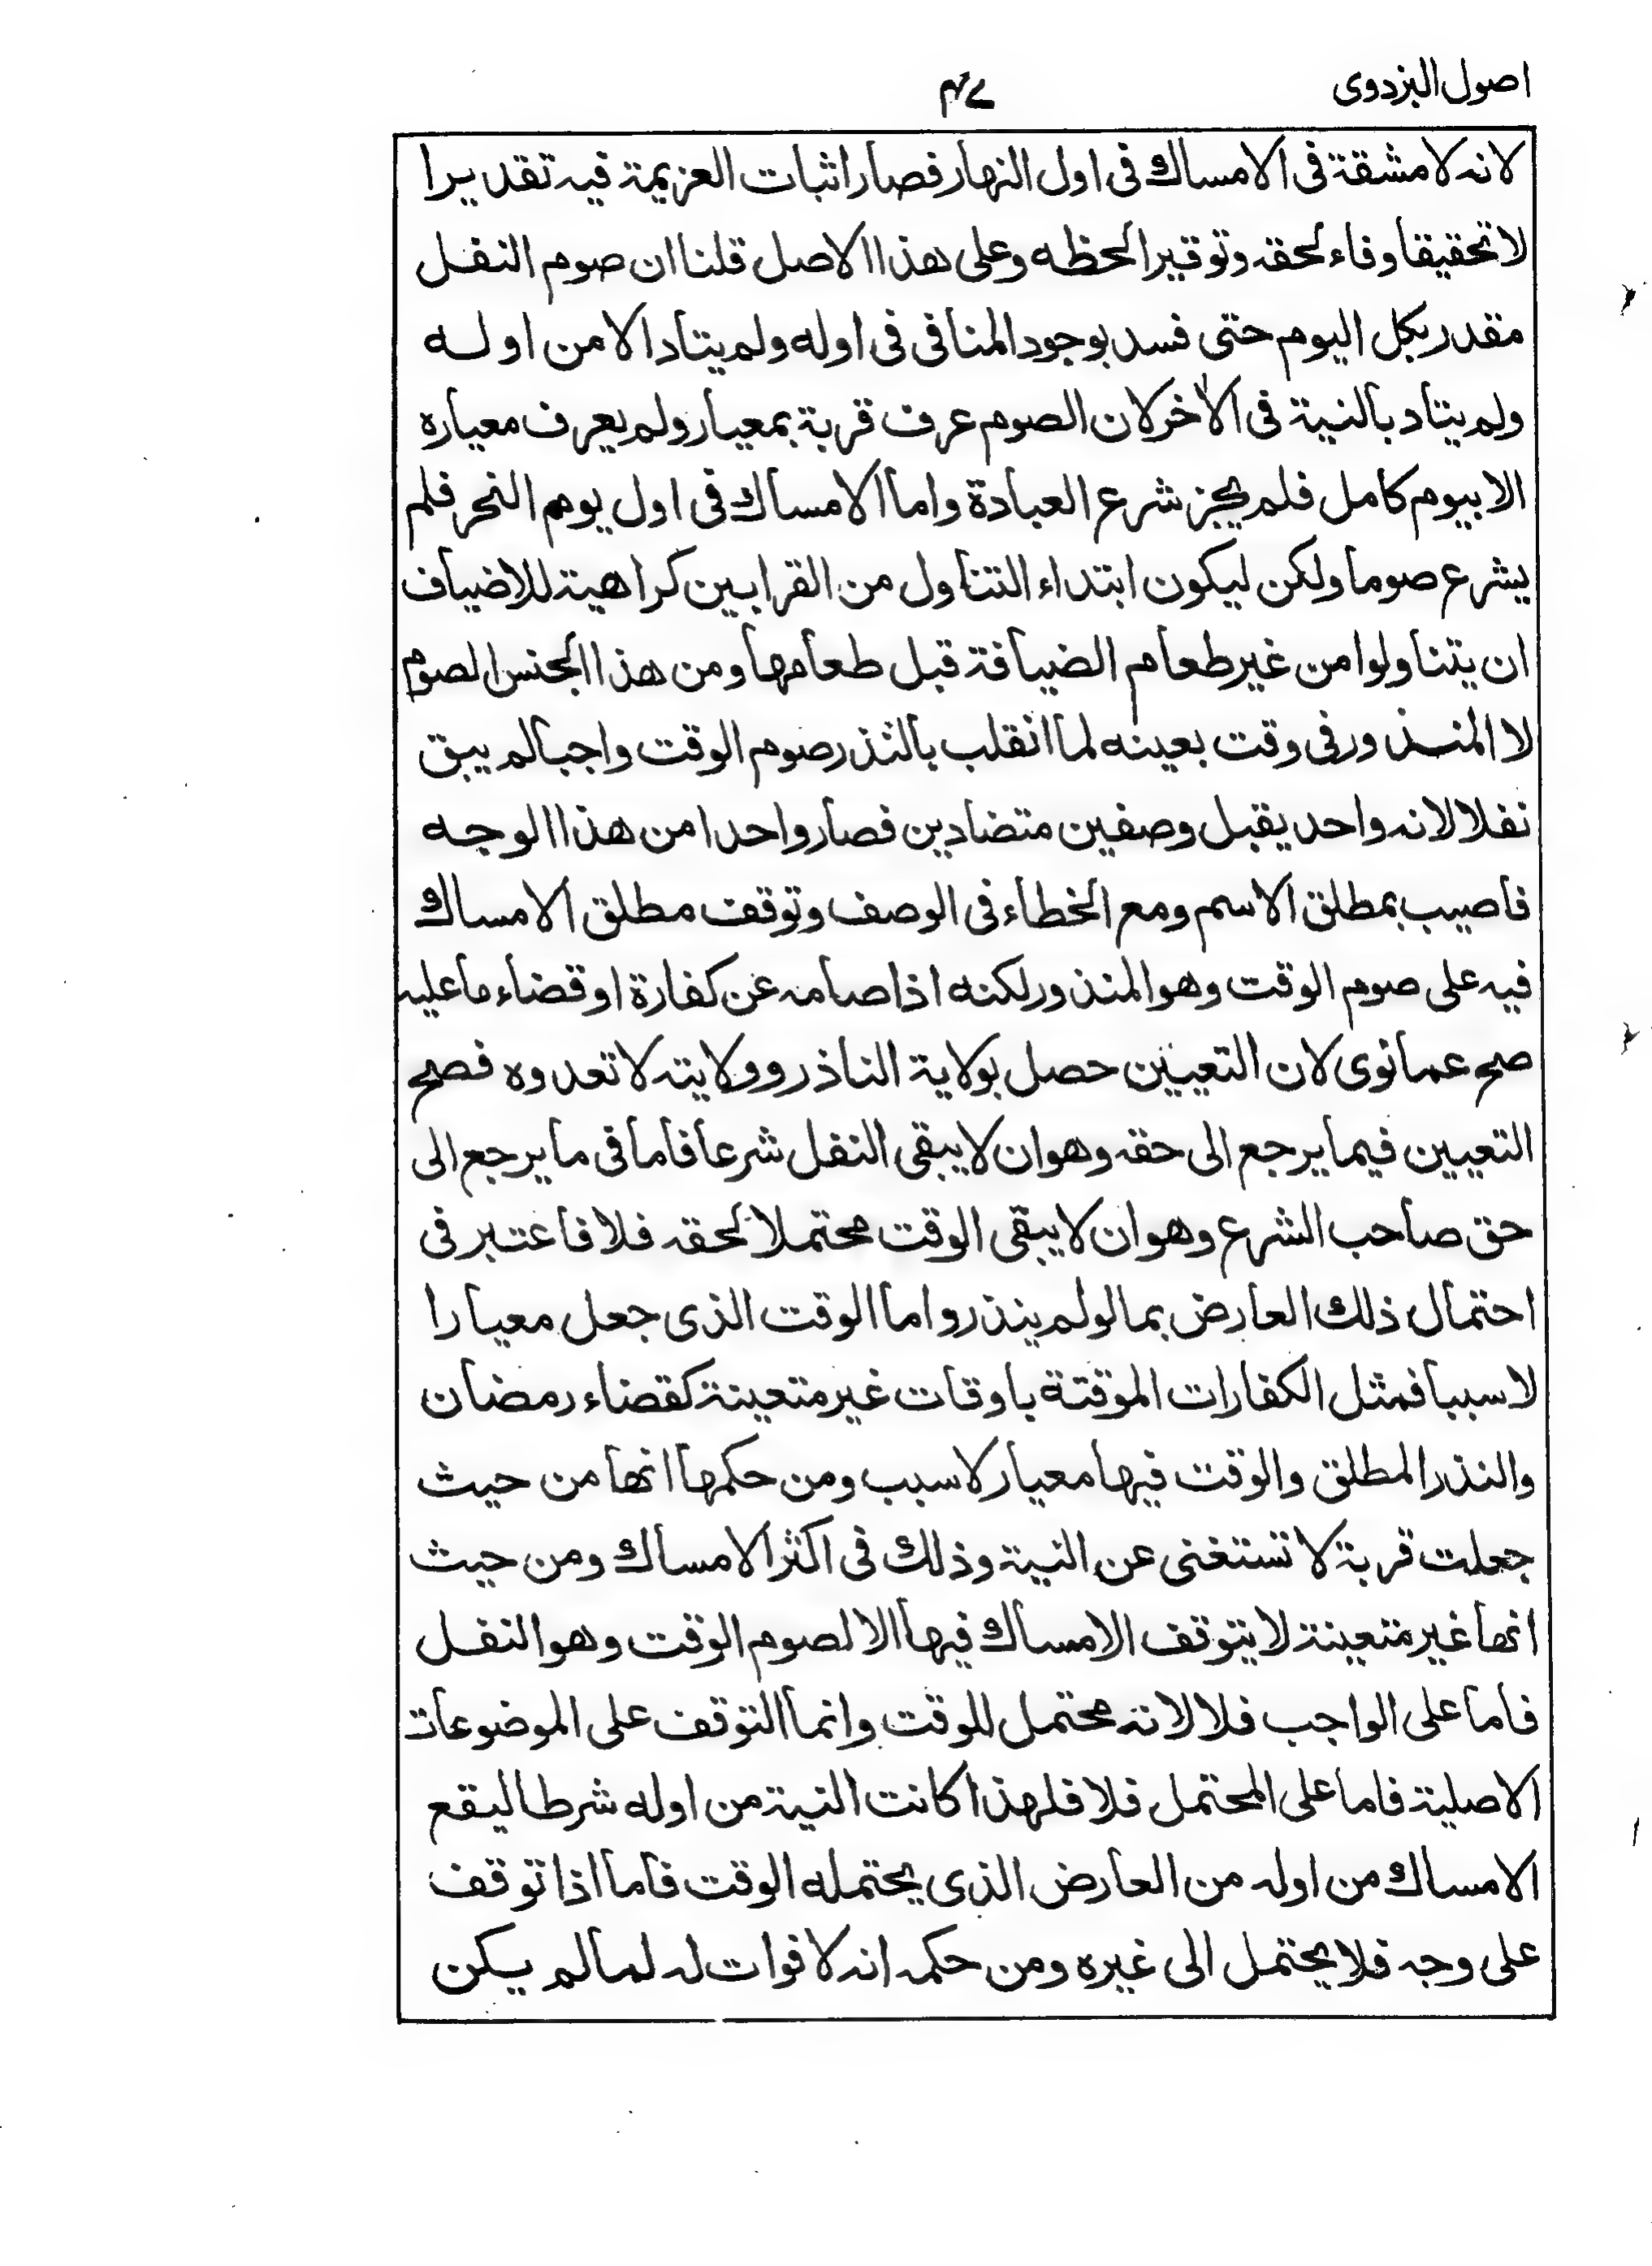 اصول البزدوى ۴۷
لانه لا مشقة فى الامساك فى اول النهار فصار اثبات العزيمة فيه تقديرا
لا تحقيقا وفاء لحقه وتوقيرا لحظه وعلى هذا الاصل قلنا ان صوم النفل
مقدر بكل اليوم حتى فسد بوجود المنافى فى اوله ولم يتاد الا من اوله
ولم يتاد بالنية فى الاخر لان الصوم عرف قربة بمعيار ولم يعرف معياره
الا بيوم كامل فلم يجز شرع العبادة واما الامساك فى اول يوم النحر فلم
يشرع صوما ولكن ليكون ابتداء التناول من القرابين كراهية للاضياف
ان يتناولوا من غير طعام الضيافة قبل طعامها ومن هذا الجنس الصوم
لا المنذور فى وقت بعينه لما انقلب بالنذر صوم الوقت واجبا لم يبق
نفلا لانه واحد يقبل وصفين متضادين فصار واحدا من هذا الوجه
فاصيب بمطلق الاسم ومع الخطاء فى الوصف وتوقف مطلق الامساك
فيه على صوم الوقت وهو المنذور لكنه اذا صامه عن كفارة او قضاء ما عليه
صح عما نوى لان التعيين حصل بولاية الناذر وولايته لا تعدوه فصح
التعيين فيما يرجع الى حقه وهو ان لا يبقى النفل شرعا فاما فى ما يرجع الى
حق صاحب الشرع وهو ان لا يبقى الوقت محتملا لحقه فلا فاعتبر فى
احتمال ذلك العارض بما لو لم ينذر واما الوقت الذى جعل معيارا
لا سببا فمثل الكفارات الموقتة باوقات غير متعينة كقضاء رمضان
والنذر المطلق والوقت فيها معيار لا سبب ومن حكمها انها من حيث
جعلت قربة لا تستغنى عن النية وذلك فى اكثر الامساك ومن حيث
انها غير متعينة لا يتوقف الامساك فيها الا لصوم الوقت وهو النفل
فاما على الواجب فلا لانه محتمل للوقت وانما التوقف على الموضوعات
الاصلية فاما على المحتمل فلا فلهذا كانت النية من اوله شرطا ليقع
الامساك من اوله من العارض الذى يحتمله الوقت فاما اذا توقف
على وجه فلا يحتمل الى غيره ومن حكمه انه لا فوات له لما لم يكن